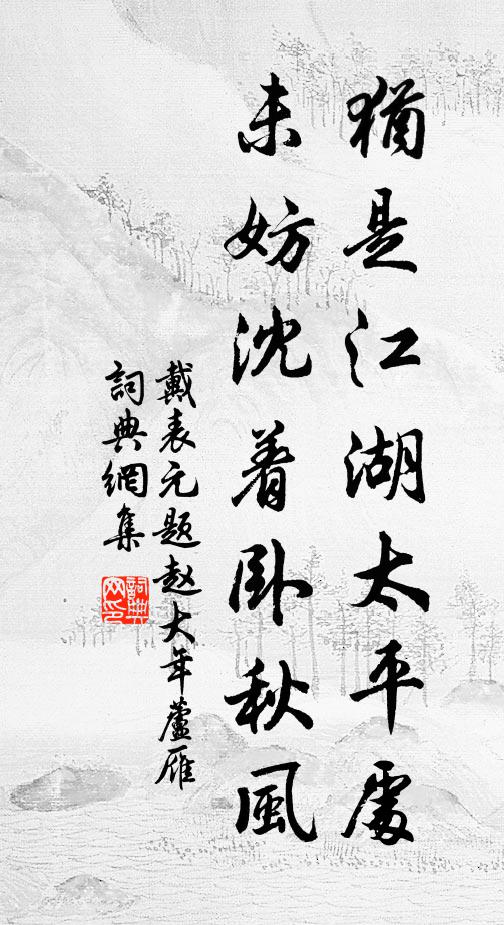 猶是江湖太平處
未妨沈着卧秋風
戴表元题赵大年蘆雁
詞典網集